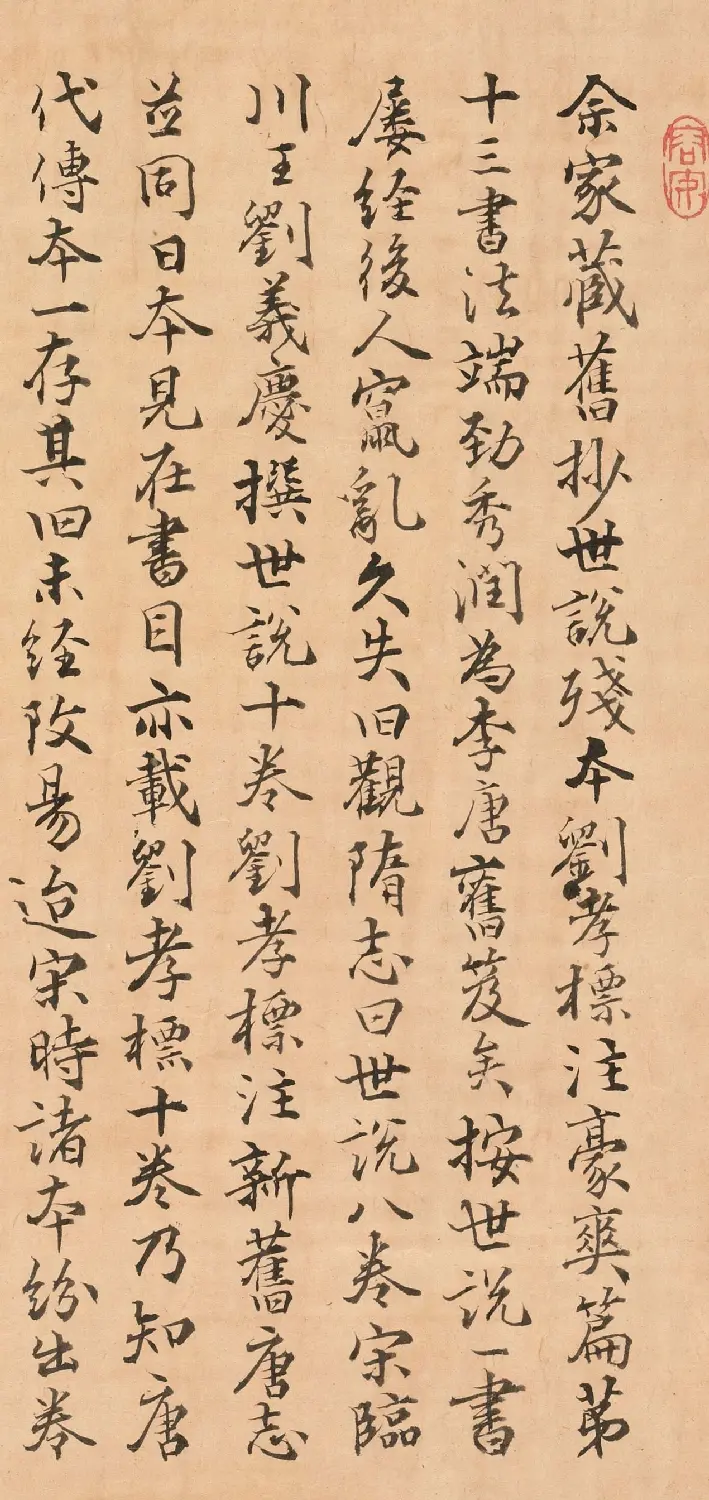 余家蔵舊抄世說殘本劉孝標注豪爽篇第
十三書法端勁秀潤為李唐舊笈矣按世說一書
屡经後人竄亂久失旧觀隋志曰世說八卷宋臨
川王劉義慶撰世說十卷劉孝標注新舊唐志
並同日本見在書目亦載劉孝標十卷乃知唐
代傳本一存其旧未经改易迨宋時諸本紛出卷